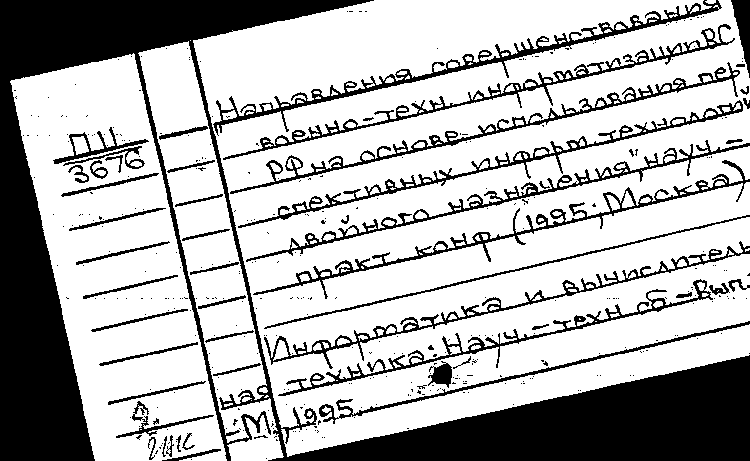 ПИ
3676
Направления совершенствования
военно-техн. информатизации ВС
РФ на основе использования пер-
спективных информ. технологий
двойного назначения", науч.-
практ. конф. (1995; Москва)
Информатика и вычислитель
ная техника: Науч.-техн сб -Вып.
-М., 1995.